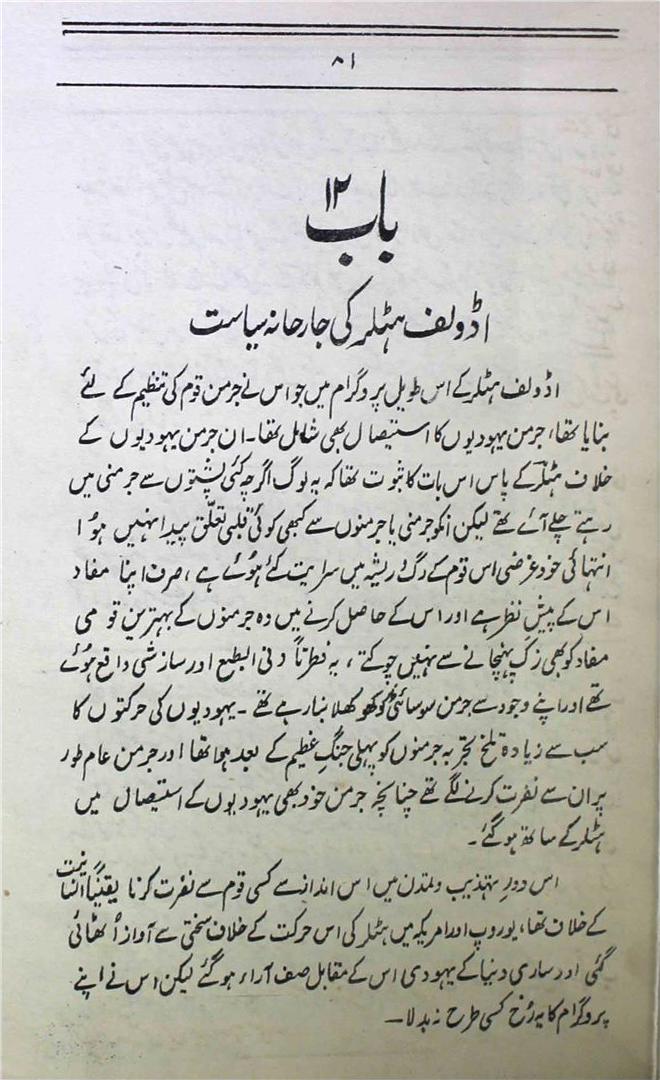 ۸۱
باب ۱۲
اڈولف ہٹلر کی جارحانہ سیاست
اڈولف ہٹلر کے اس طویل پروگرام میں جو اس نے جرمن قوم کی تنظیم کے لئے
بنایا تھا، جرمن یہودیوں کا استیصال بھی شامل تھا۔ ان جرمن یہودیوں کے
خلاف ہٹلر کے پاس اس بات کا ثبوت تھا کہ یہ لوگ اگرچہ کئی پشتوں سے جرمنی میں
رہتے چلے آئے تھے لیکن انکو جرمنی یا جرمنوں سے کبھی کوئی قلبی تعلّق پیدا نہیں ہؤا
انتہائی خود غرضی اس قوم کے رگ و ریشہ میں سرایت کئے ہوئے ہے، صرف اپنا مفاد
اس کے پیشِ نظر ہے اور اس کے حاصل کرنے میں وہ جرمنوں کے بہترین قومی
مفاد کو بھی زک پہنچانے سے نہیں چوکتے، یہ فطرتاً دنی الطبع اور سازشی واقع ہوئے
تھے اور اپنے وجود سے جرمن سوسائٹی کو کھوکھلا بنا رہے تھے۔ یہودیوں کی حرکتوں کا
سب سے زیادہ تلخ تجربہ جرمنوں کو پہلی جنگِ عظیم کے بعد ہوا تھا اور جرمن عام طور
پر ان سے نفرت کرنے لگے تھے چنانچہ جرمن خود بھی یہودیوں کے استیصال میں
ہٹلر کے ساتھ ہو گئے۔
اس دورِ تہذیب و تمدن میں اس انداز سے کسی قوم سے نفرت کرنا یقیناً انسانیت
کے خلاف تھا، یوروپ اور امریکہ میں ہٹلر کی اس حرکت کے خلاف سختی سے آواز اُٹھائی
گئی اور ساری دنیا کے یہودی اس کے مقابل صف آراء ہو گئے لیکن اس نے اپنے
پروگرام کا یہ رُخ کسی طرح نہ بدلا۔